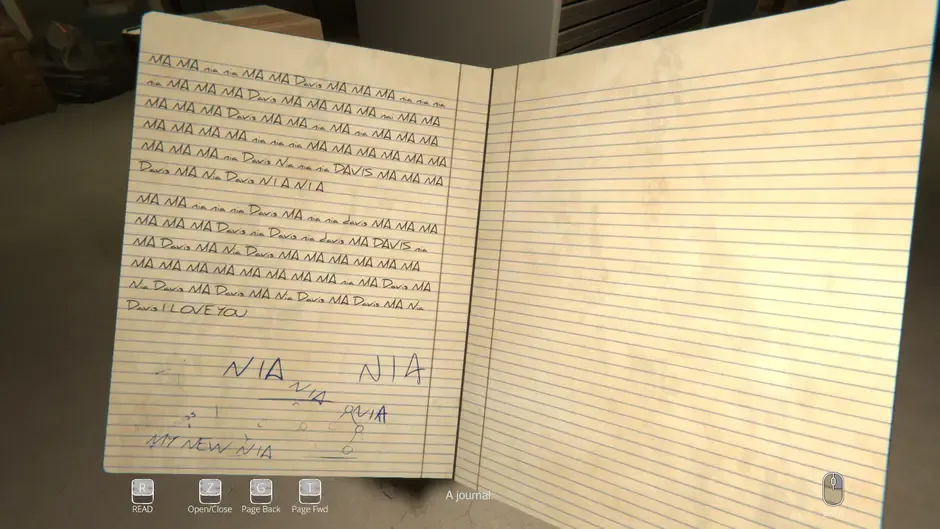 MA MA nia nia MA MA Davis MA MA MA nia nia nia
nia MA MA MA Davis MA MA MA MA MA nai MA MA
MA MA MA Davis MA MA nia MA nia MA MA MA
MA MA MA MA nia nia nia MA MA MA MA MA MA
MA MA MA nia Davis Nia nia nia DAVIS MA MA MA
Davis MA Nia Davis N I A N I A
MA MA nia nia nia Davis MA nia nia davis MA MA MA
MA MA MA Davis nia Davis nia davis MA DAVIS nia
MA Davis MA Nia Davis MA MA MA MA MA MA
MA MA MA MA MA MA MA MA nia MA Davis MA
Nia Davis MA Davis MA Nia Davis MA Davis MA Nia
Davis I LOVE YOU
NIA NIA
NIA
NIA
MY NEW NIA
A journal
R Z G T
READ Open/Close Page Back Page Fwd